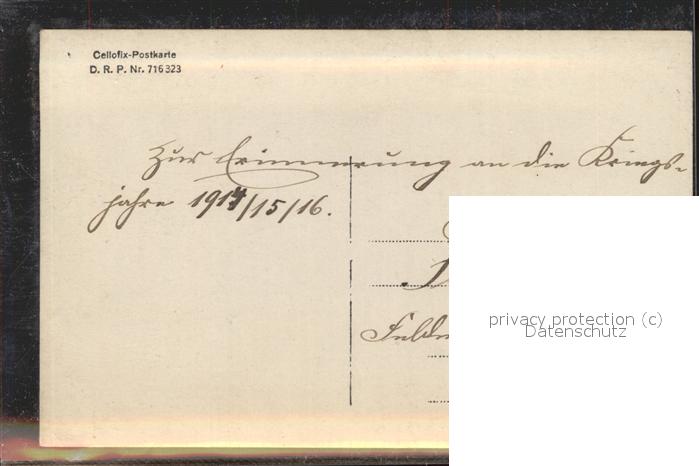 Cellofix-Postkarte
D. R. P. Nr. 716323
Zur Erinnerung an die Kriegs-
jahre 1914/15/16.
privacy protection (c)
Datenschutz